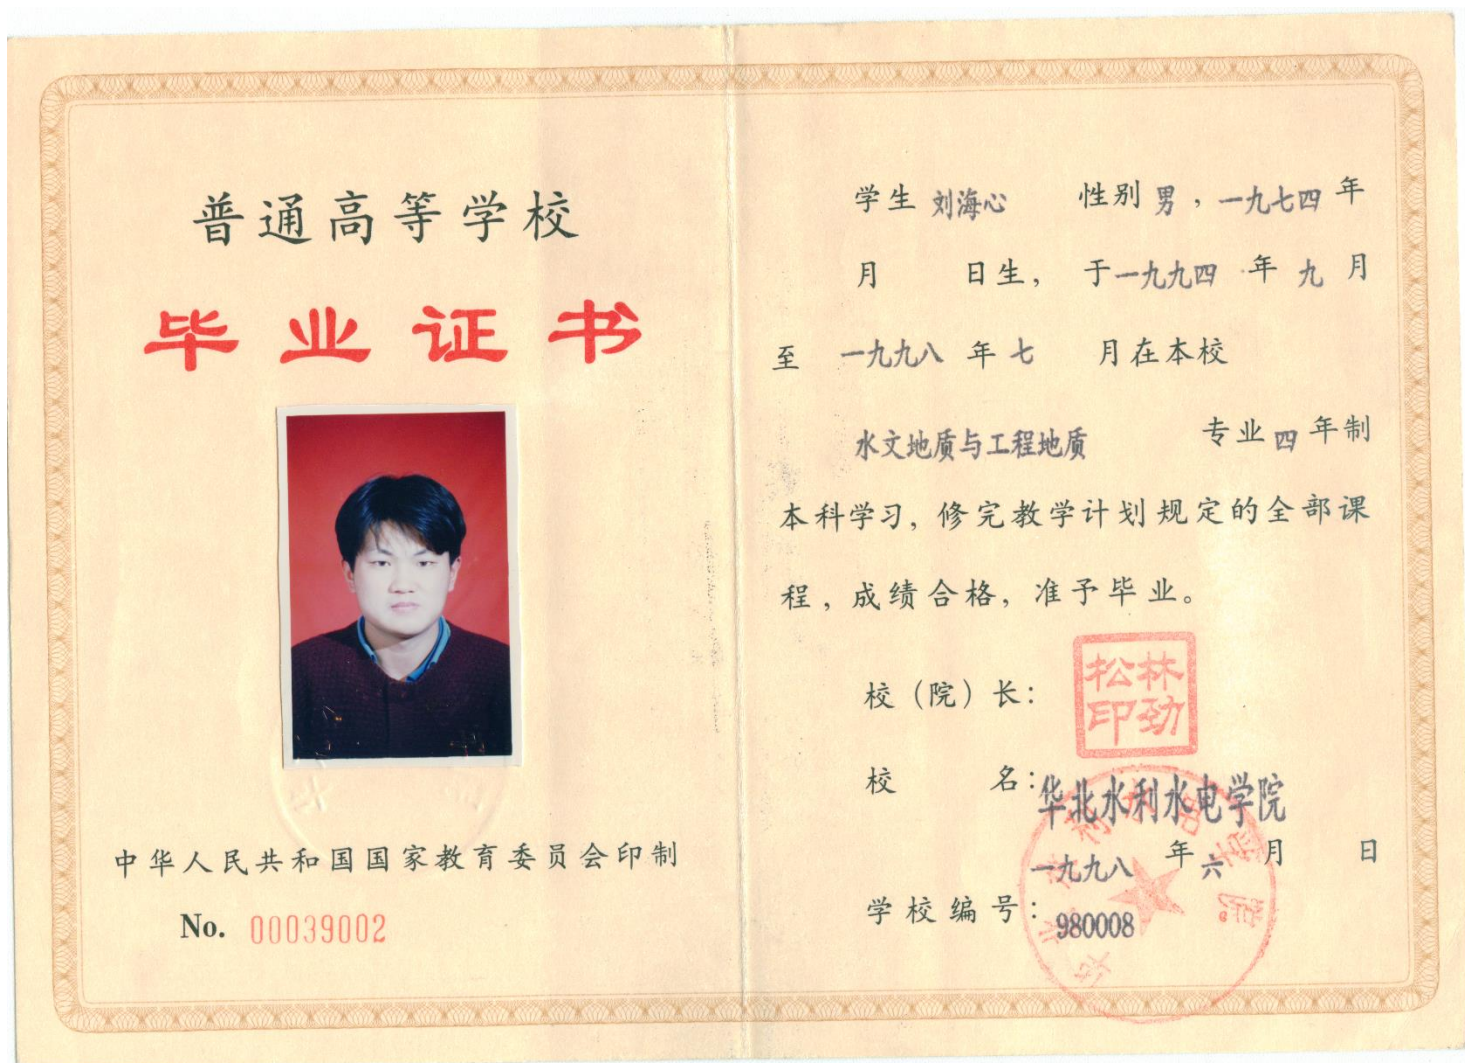 普通高等学校
毕业证书
中华人民共和国国家教育委员会印制
No. 00039002
学生 刘海心 性别 男，一九七四 年
月 日生， 于一九九四 年 九 月
至 一九九八 年 七 月在本校
水文地质与工程地质 专业 四 年制
本科学习，修完教学计划规定的全部课
程，成绩合格，准予毕业。
校（院）长： 林劲松印
校 名：华北水利水电学院
一九九八 年 六 月 日
学校编号：980008